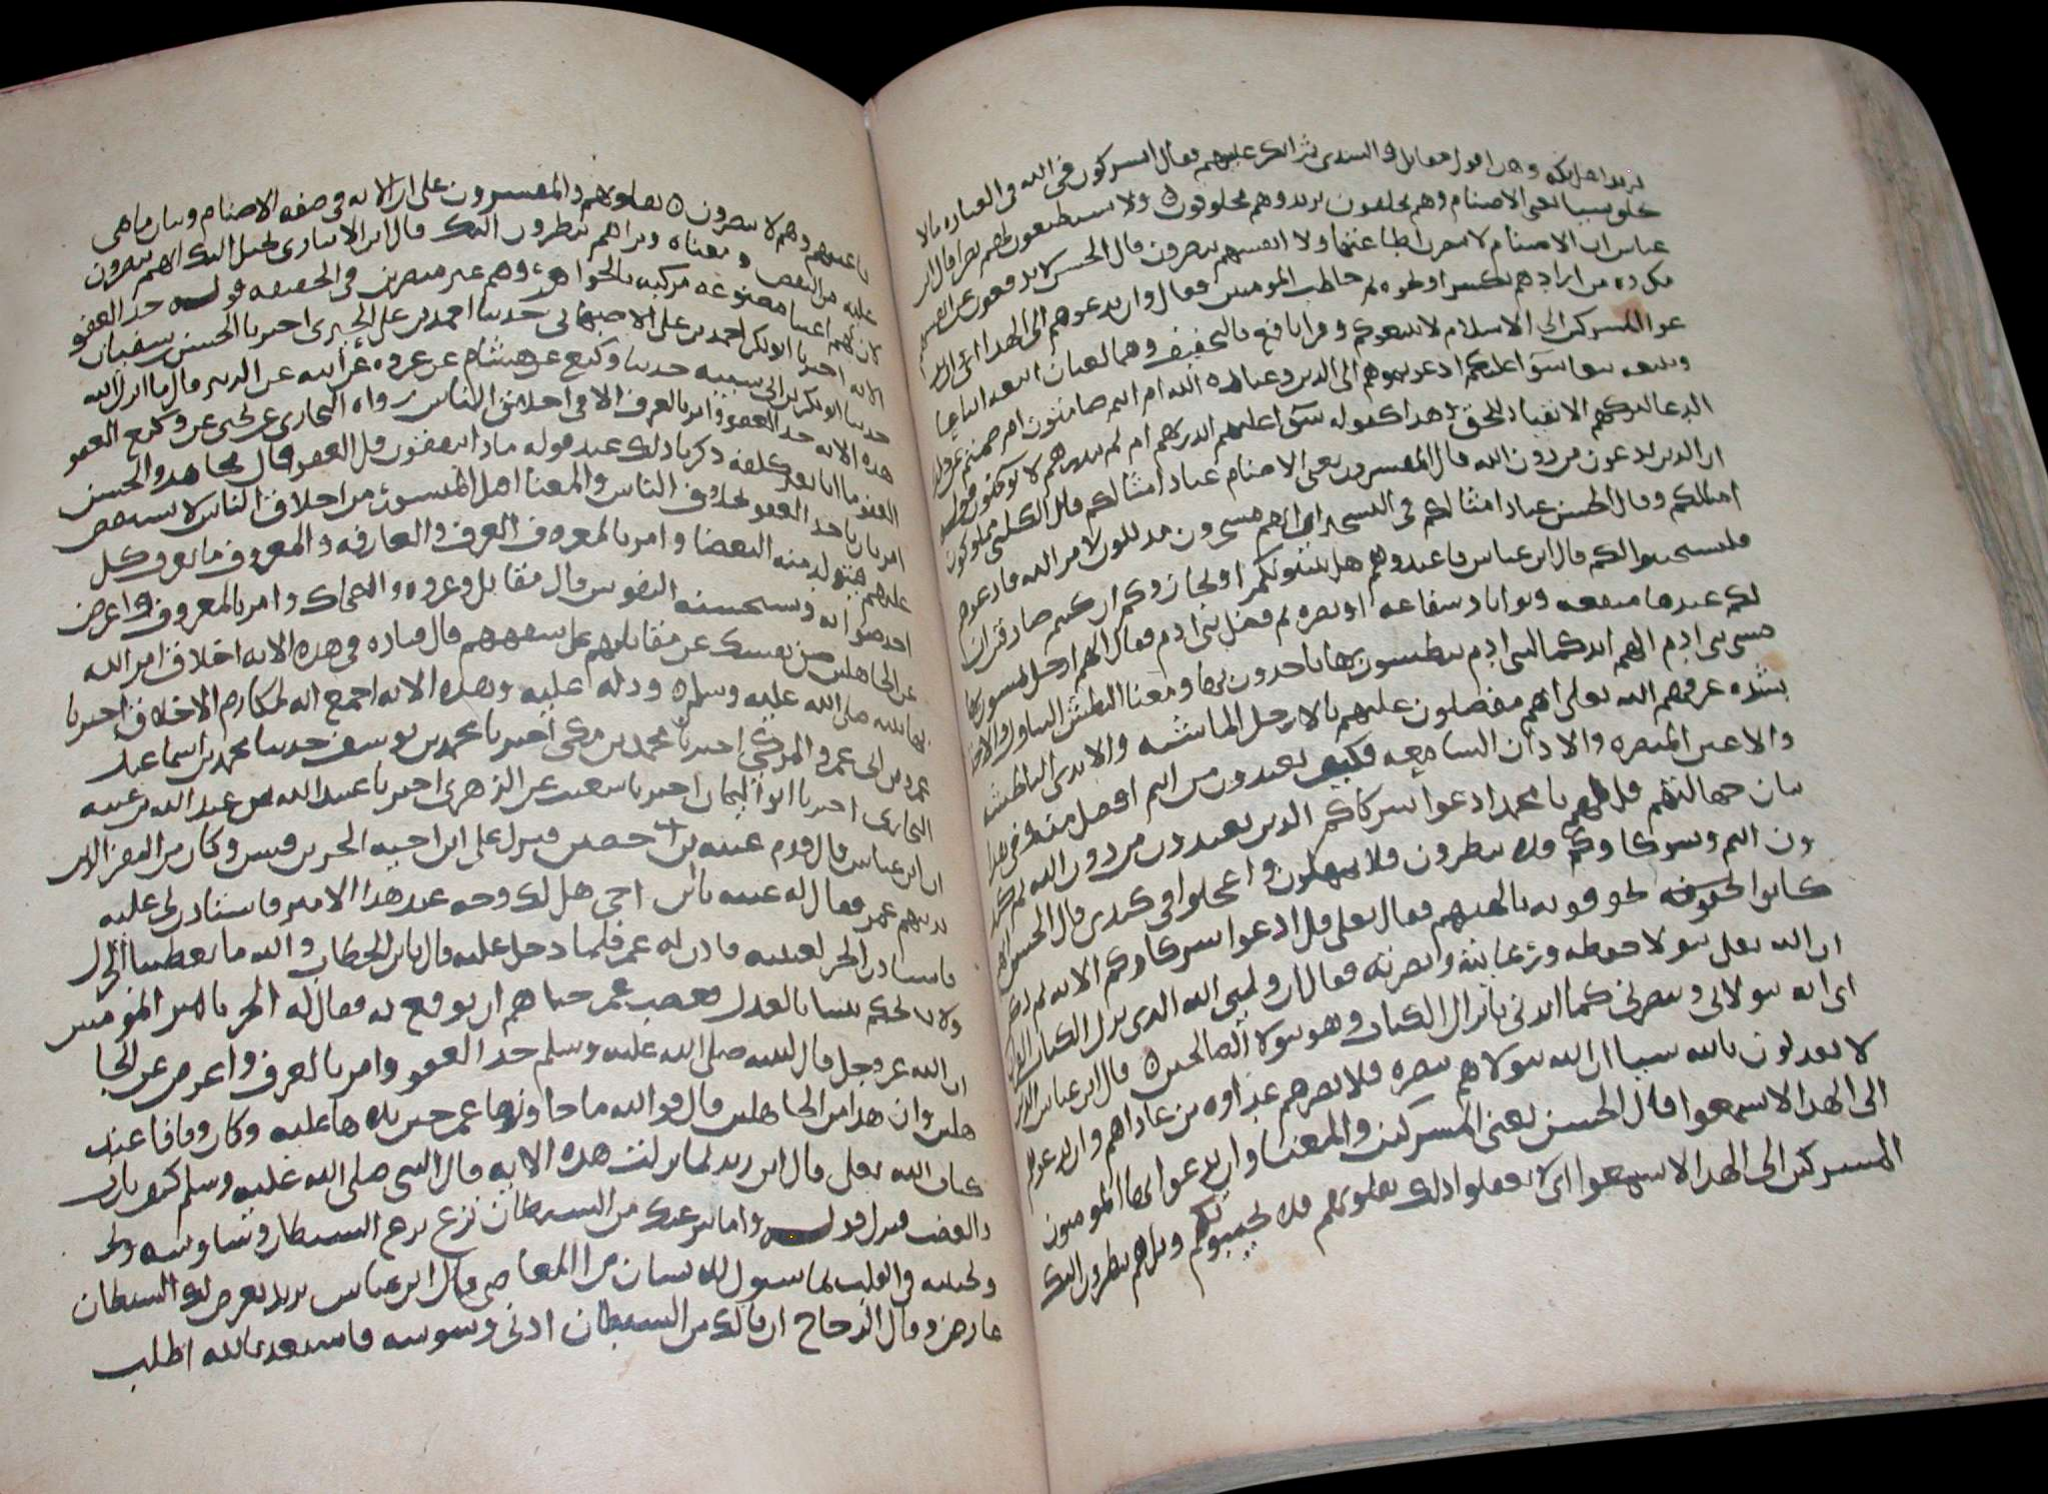 يريد اهل مكة وهذا قول مقاتل والسدي ثم انكر عليهم فقال ايشركون في الله في العباده ما لا
يخلق شيا يعني الاصنام وهم يخلقون يريد وهم مخلوقون ولا يستطيعون لهم نصرا قال ابن
عباس ان الاصنام لا تنصر من اطاعها ولا انفسهم ينصرون قال الحسن لا يدفعون عن انفسهم
مكروه من اراد بهم بكسر او نحوه ثم خاطب المومنين فقال وان تدعوهم الى الهدا اي ان
تدعوا المشركين الى الاسلام لا يتبعوكم وقرا نافع بالتخفيف وهما لغتان اتبعه اتباعا
وتبعه تبعا سوا عليكم ادعوتموهم الى الدين وعباده الله ام انتم صامتون ام صمتم عن
الدعا لتركهم الانقياد للحق وهذا كقوله سوا عليهم اانذرتهم ام لم تنذرهم لا يومنون قوله
ان الذين تدعون من دون الله قال المفسرون يعني الاصنام عباد امثالكم قال الكلبي مملوكون
امثالكم وقال الحسن عباد امثالكم في التسخير اي انهم مسخرون مذللون لامر الله فادعوهم
فليستجيبوا لكم قال ابن عباس فاعبدوهم هل يثيبونكم او يجازونكم ان كنتم صادقين ان
لكم عندها منفعه وثوابا وشفاعه او نصره ثم فضل بني ادم فقال الهم ارجل يمشون بها
مشي بني ادم ام لهم ايد كما لبني ادم يبطشون بها ياخذون بها ومعنا البطش التناول والاخذ
بشده عرفهم الله تعالى انهم مفضلون عليهم بالارجل الماشيه والايدي الباطشه
والاعين المبصره والاذان السامعه فكيف يعبدون من انتم افضل منه في هذا
بيان جهالتهم قل لهم يا محمد ادعوا شركاكم الذين تعبدون من دون الله ثم كيد
ون انتم وشركاوكم فلا تنظرون فلا تمهلون واعجلوا في كيدي قال الحسن
كانوا يخوفونه بالهتهم فقال تعالى قل ادعوا شركاوكم الايه ثم ذكر
ان الله تعالى يتولا حفظه ورعايته ونصرته فقال ان وليي الله الذي نزل الكتاب القران
اي انه يتولاني وينصرني كما ايدني بانزال الكتاب وهو يتولا الصالحين قال ابن عباس الذين
لا يعدلون بالله شيا ان الله يتولاهم بنصره فلا يضرهم عداوه من عاداهم وان تدعوهم
الى الهدا لا يسمعوا قال الحسن يعني المشركين والمعنا وان تدعوا ايها المومنون
المشركين الى الهدا لا يسمعوا اي لا يعقلوا ذلك بقلوبهم فلا يجيبوكم وتراهم ينظرون اليك
باعينهم وهم لا يبصرون بقلوبهم والمفسرون على ان الايه في صفه الاصنام وبيان ما هي
عليه من النقص ومعناه وتراهم ينظرون اليك قال ابن الانباري يخيل اليك انهم يبصرون
لان لهم اعينا مصنوعه مركبه بالجواهر وهم غير مبصرين في الحقيقه قوله خذ العفو
الايه اخبرنا ابو بكر احمد بن علي الاصبهاني حدثنا احمد بن علي الحيري اخبرنا الحسن بن سفيان
حدثنا ابو بكر بن ابي شيبه حدثنا وكيع عن هشام عن عروه عن ابيه عن ابن الزبير قال ما انزل الله
هذه الايه خذ العفو وامر بالعرف الا في اخلاق الناس رواه البخاري عن يحيى عن وكيع العفو
العفو ما اتا بغير كلفه ذكرنا ذلك عند قوله ماذا ينفقون قل العفو قال مجاهد والحسن
امر بان ياخذ العفو من اخلاق الناس والمعنا اقبل الميسور من اخلاق الناس لا تستقص
عليهم فيتولد منه البغضا وامر بالمعروف العرف والعارفه والمعروف ما تعرف كل
احد صوابه وتستحسنه النفوس قال مقاتل وعروه والضحاك وامر بالمعروف واعرض
عن الجاهلين صن نفسك عن مقابلتهم على سفههم قال قتاده في هذه الايه اخلاق امر الله
بها نبيه صلى الله عليه وسلم ودله عليه وبهذه الايه اجمع ايه لمكارم الاخلاق اخبرنا
عمرو بن ابي عمرو المزكي اخبرنا محمد بن مكي اخبرنا محمد بن يوسف حدثنا محمد بن اسماعيل
البخاري اخبرنا ابو اليمان اخبرنا شعيب عن الزهري اخبرنا عبيد الله بن عبد الله بن عتبه
ان ابن عباس قال قدم عيينه بن حصن فنزل على ابن اخيه الحر بن قيس وكان من النفر الذين
يدنيهم عمر فقال له عيينه يابن اخي هل لك وجه عند هذا الامير فاستاذن لي عليه
فاستاذن الحر لعيينه فاذن له عمر فلما دخل عليه قال يابن الخطاب والله ما تعطينا الجزل
ولا تحكم بيننا بالعدل فغضب عمر حتا هم ان يوقع به فقال له الحر يا امير المومنين
ان الله عز وجل قال لنبيه صلى الله عليه وسلم خذ العفو وامر بالعرف واعرض عن الجا
هلين وان هذا من الجاهلين قال فوالله ما جاوزها عمر حين تلاها عليه وكان وقافا عند
كتاب الله تعالى قال ابن زيد لما نزلت هذه الايه قال النبي صلى الله عليه وسلم كيف يا رب
والغضب فنزل قوله واما ينزغنك من الشيطان نزغ نزغ الشيطان وساوسه
في القلب لما يسول للانسان من المعاصي قال ابن عباس يريد يعرض لك الشيطان
عارض وقال الزجاج ان نالك من الشيطان ادنى وسوسه فاستعذ بالله اطلب